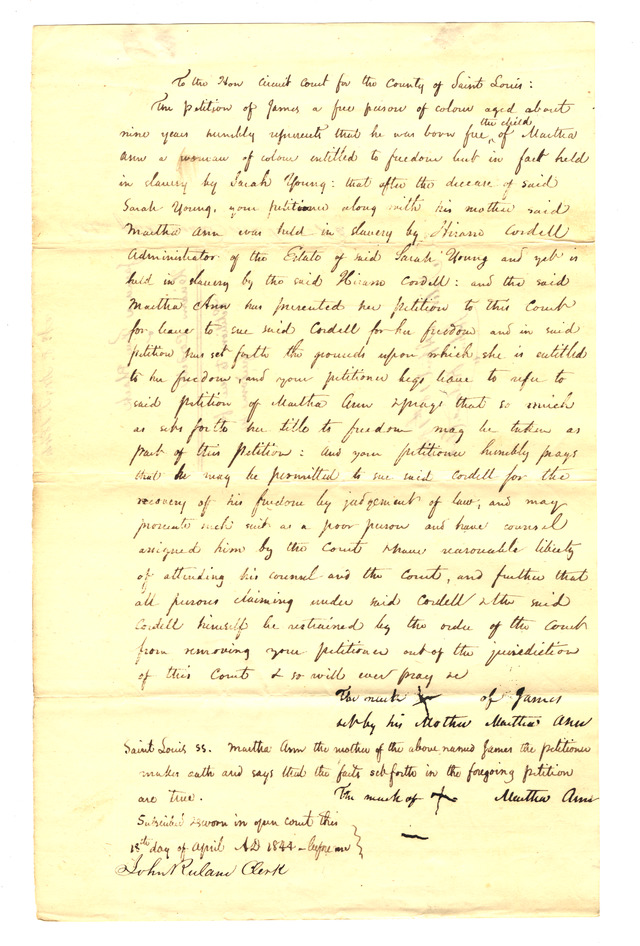 To the Hon circuit court for the county of Saint Louis:
The Petition of James a free person of colour aged about
nine years humbly represents that he was born free, the child of Martha
Ann a woman of colour entitled to freedom but in fact held
in slavery by Sarah Young: that after the decease of said
Sarah Young, your petitioner along with his mother said
Martha Ann was held in slavery by Hiram Cordell
Administrator of the Estate of said Sarah Young and yet is
held in slavery by the said Hiram Cordell: and the said
Martha Ann has presented her petition to this Court
for leave to sue said Cordell for her freedom and in said
petition has set forth the grounds upon which she is entitled
to her freedom, and your petitioner begs leave to refer to
said petition of Martha Ann & prays that so much
as sets forth her title to freedom may be taken as
part of this Petition: and your petitioner humbly prays
that he may be permitted to sue said Cordell for the
recovery of his freedom by judgement of law, and may
prosecute such suit as a poor person and have counsel
assigned him by the Court & have reasonable liberty
of attending his counsel and the Court, and further that
all persons claiming under said Cordell & the said
Cordell himself be restrained by the order of the Court
from removing your petitioner out of the jurisdiction
of this Court & so will ever pray &c
The mark of James
set by his Mother Martha Ann
Saint Louis ss. Martha Ann the mother of the above named James the petitioner
makes oath and says that the facts set forth in the foregoing petition
are true. The mark of Martha Ann
Subscribed & sworn in open court this
18th day of April AD 1844 - before me
John Ruland Clerk